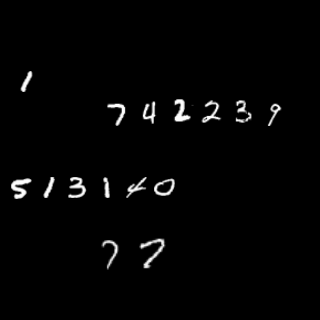 1
742239
513140
77